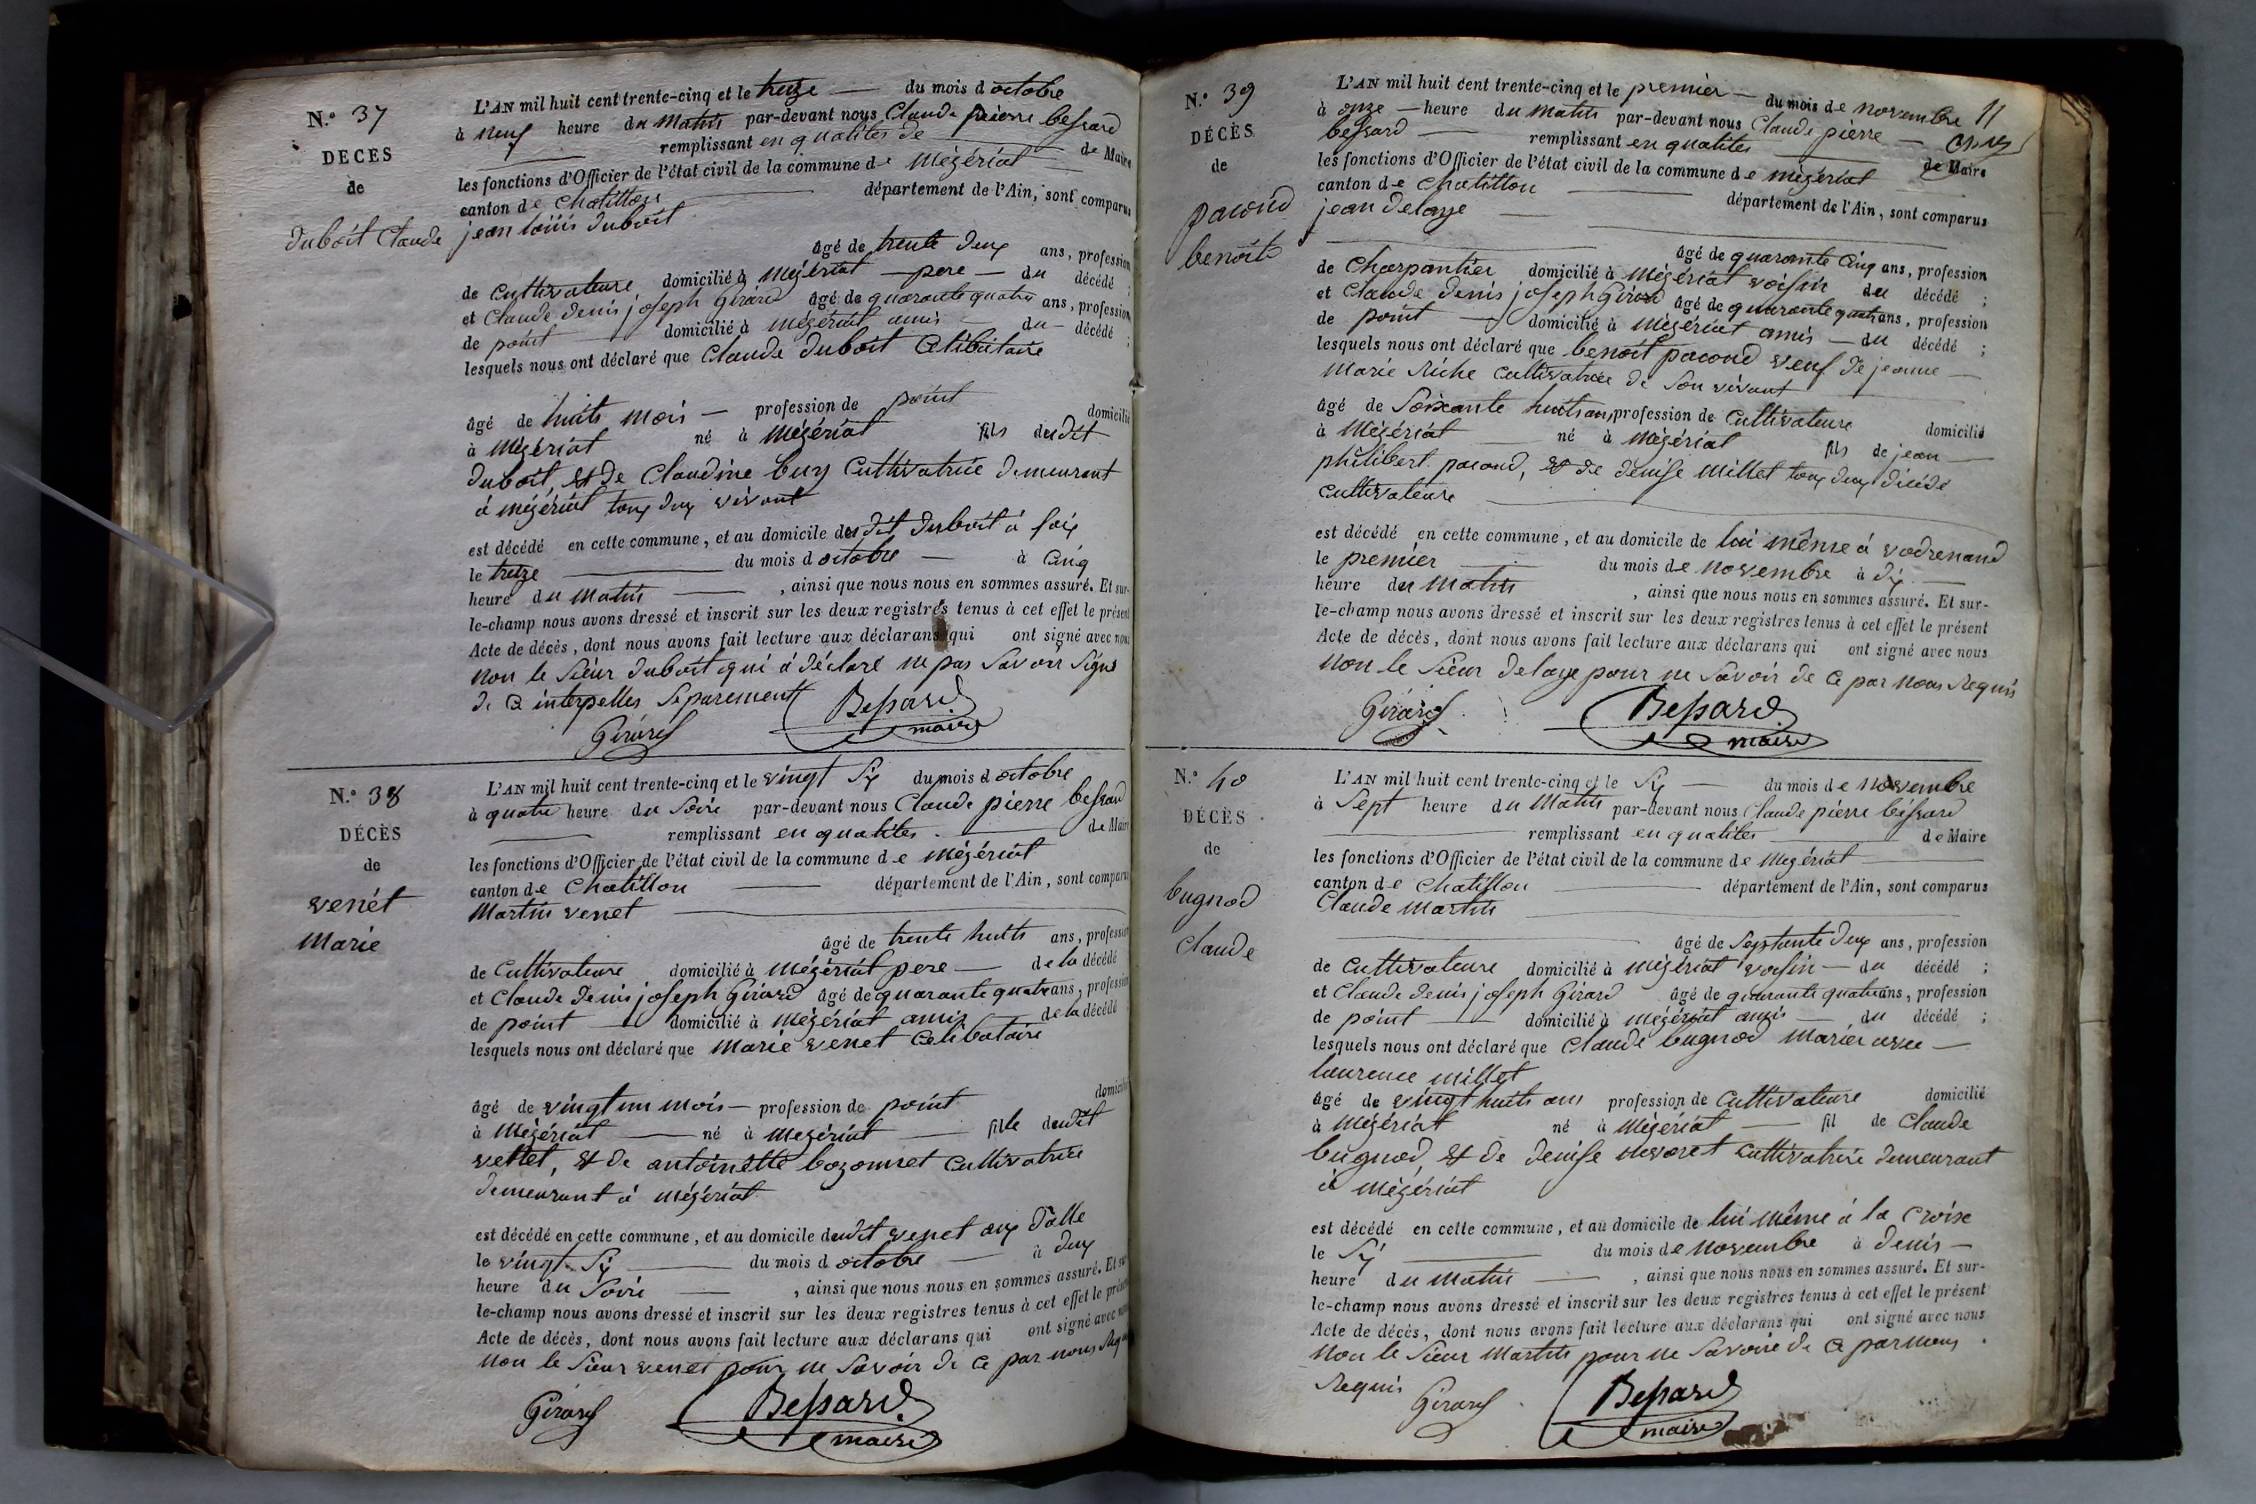 N.º 37
DÉCÈS
de
duboit Claude
L'AN mil huit cent trente-cinq et le treize du mois d octobre
à neuf heure du matin par-devant nous Claude pierre bessard
remplissant en qualités de de Maire
les fonctions d'Officier de l'état civil de la commune de mézériat
canton de chatillon département de l'Ain, sont comparus
jean louis duboit
âgé de trente deux ans, profession
de cultivateure domicilié à mézériat pere du décédé ;
et Claude denis joseph Girard âgé de quarante quatre ans, profession
de point domicilié à mézériat amis du décédé ;
lesquels nous ont déclaré que Claude duboit Celibataire
âgé de huits mois profession de point domicilié
à mézériat né à mézériat fils dudit
duboit, et de Claudine buy Cultivatrice demeurant
à mézériat tous deux vivant
est décédé en cette commune, et au domicile dudit duboit à
le treize du mois d octobre à cinq
heure du matin , ainsi que nous nous en sommes assuré. Et sur-
le-champ nous avons dressé et inscrit sur les deux registres tenus à cet effet le présent
Acte de décès, dont nous avons fait lecture aux déclarans qui ont signé avec nous
non le sieur duboit qui à déclaré ne pas savoir signé
de ce interpelles séparement
Girard Bessard maire
N.º 38
DÉCÈS
de
venét
marie
L'AN mil huit cent trente-cinq et le vingt six du mois d octobre
à quatre heure du soire par-devant nous Claude pierre bessard
remplissant en qualités de Maire
les fonctions d'Officier de l'état civil de la commune de mézériat
canton de chatillon département de l'Ain, sont comparus
Martin venet
âgé de trente huits ans, profession
de cultivateure domicilié à mézériat pere de la décédé
et Claude denis joseph Girard âgé de quarante quatre ans, profession
de point domicilié à mézériat amis de la décédé
lesquels nous ont déclaré que marie venet Celibataire
âgé de vingt un mois profession de point domicilié
à mézériat né à mezériat fille dudit
venet, et de antoinette bozonnet cultivatrice
demeurant à mézériat
est décédé en cette commune, et au domicile dudit venet aux dalle
le vingt six du mois d octobre à deux
heure du soire , ainsi que nous nous en sommes assuré. Et sur-
le-champ nous avons dressé et inscrit sur les deux registres tenus à cet effet le présent
Acte de décès, dont nous avons fait lecture aux déclarans qui ont signé avec nous
non le sieur venet pour ne savoir de ce par nous requis
Girard Bessard maire
N.º 39
DÉCÈS
de
pacoud
benoit
L'AN mil huit cent trente-cinq et le premier du mois de novembre 11
à onze heure du matin par-devant nous Claude pierre
bessard remplissant en qualités de Maire
les fonctions d'Officier de l'état civil de la commune de mézériat
canton de chatillon département de l'Ain, sont comparus
jean delaye
âgé de quarante cinq ans, profession
de charpantier domicilié à mézériat voisin du décédé ;
et Claude denis joseph Girard âgé de quarante quatre ans, profession
de point domicilié à mézériat amis du décédé ;
lesquels nous ont déclaré que benoit pacoud veuf de jeanne
marie Riche cultivatrice de son vivant
âgé de soixante huits ans profession de cultivateure domicilié
à mézériat né à mézériat fils de jean
philibert pacoud, et de denise millet tous deux décédé
cultivateure
est décédé en cette commune, et au domicile de lui même à vodrenand
le premier du mois de novembre à dix
heure du matin , ainsi que nous nous en sommes assuré. Et sur-
le-champ nous avons dressé et inscrit sur les deux registres tenus à cet effet le présent
Acte de décès, dont nous avons fait lecture aux déclarans qui ont signé avec nous
non le sieur delaye pour ne savoir de ce par nous requis
Girard Bessard maire
N.º 40
DÉCÈS
de
bugnod
claude
L'AN mil huit cent trente-cinq et le six du mois de novembre
à sept heure du matin par-devant nous Claude pierre bessard
remplissant en qualites de Maire
les fonctions d'Officier de l'état civil de la commune de mezériat
canton de chatillon département de l'Ain, sont comparus
Claude martin
âgé de septante deux ans, profession
de cultivateure domicilié à mézériat voisin du décédé ;
et Claude denis joseph Girard âgé de quarante quatre ans, profession
de point domicilié à mézériat amis du décédé ;
lesquels nous ont déclaré que claude bugnod marier avec
laurence millet
âgé de vingt huits ans profession de cultivateure domicilié
à mézériat né à mézériat fil de claude
bugnod, et de denise nevoret cultivatrice demeurant
à mézériat
est décédé en cette commune, et au domicile de lui même à la croix
le six du mois de novembre à denis
heure du matin , ainsi que nous nous en sommes assuré. Et sur-
le-champ nous avons dressé et inscrit sur les deux registres tenus à cet effet le présent
Acte de décès, dont nous avons fait lecture aux déclarans qui ont signé avec nous
non le sieur martin pour ne savoire de ce par nous
requis Girard Bessard maire